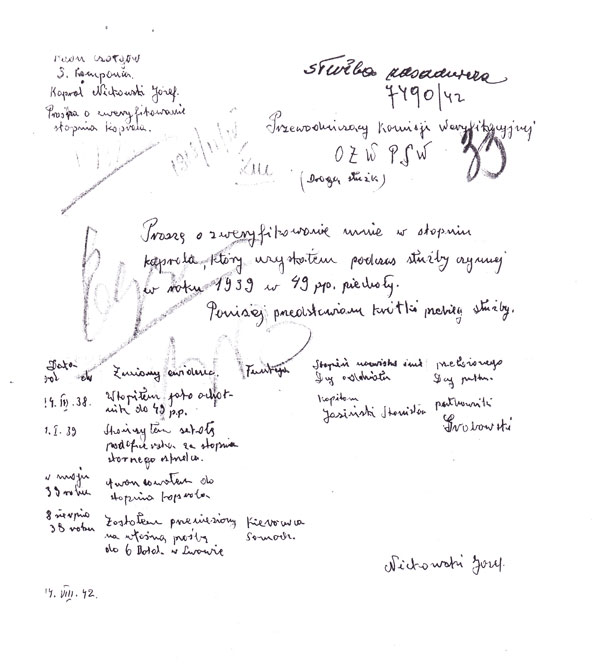 3. Kompania.
Kaprol Nickowski Józef.
Prośba o zweryfikowanie
stopnia kaprola.
służba zasadnicza
7490/42
Przewodniczący Komisji Weryfikacyjnej
OZW PSW
(Drogą służb.)
33
Proszę o zweryfikowanie mnie w stopniu
kaprola, który uzyskałem podczas służby czynnej
w roku 1939 w 49 pp. piechoty.
Poniżej przedstawiam krótki przebieg służby.
Data
od do Zmiany ewidenc. Funkcja Stopień nazwisko imię przełożonego
D-cy oddziału D-cy pułku.
14. III. 38. Wstąpiłem jako ochot-
nik do 49 pp. kapitan Jasiński Stanisław pułkownik
1. I. 39 Skończyłem szkołę
podoficerską ze stopniem
starszego strzelca.
w maju
39 roku awansowałem do
stopnia kaprola
8 sierpnia
39 roku Zostałem przeniesiony Kierowca
na własną prośbę Samoch.
do 6 Dołd. w Lwowie
Nickowski Józef.
14. VIII. 42.